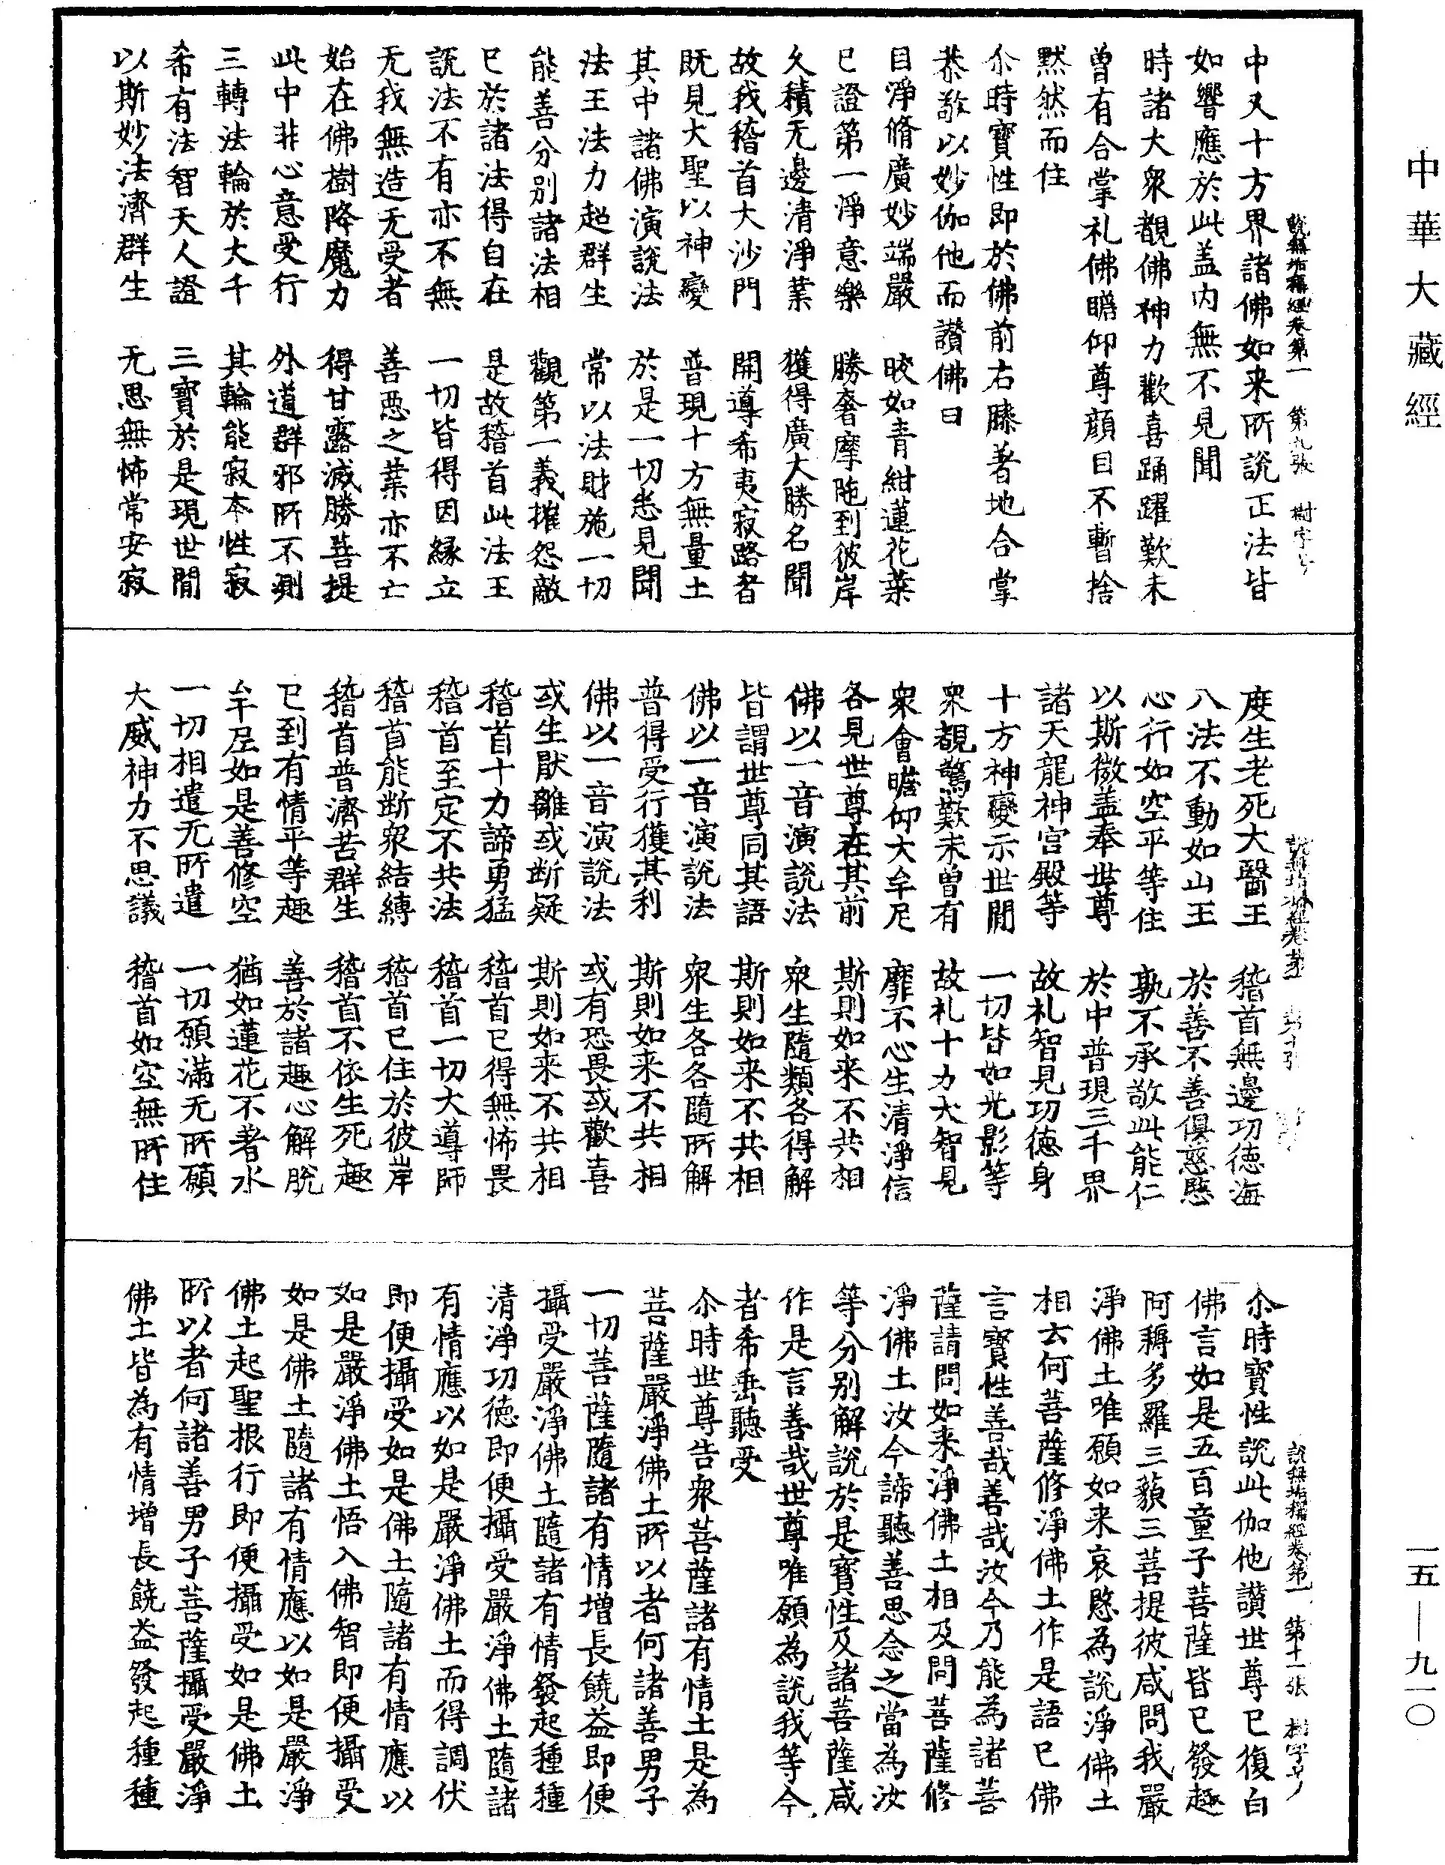 中華大藏經
一五—九一〇
說無垢稱經卷第一 第九張 樹字号
中又十方界諸佛如来所說正法皆
如響應於此盖内無不見聞
時諸大衆覩佛神力歡喜踊躍歎未
曾有合掌礼佛瞻仰尊顔目不暫捨
黙然而住
尒時寶性即於佛前右膝著地合掌
恭敬以妙伽他而讃佛曰
目淨脩廣妙端嚴 皎如青紺蓮花葉
已證第一淨意樂 勝奢摩陁到彼岸
久積无邊清淨業 獲得廣大勝名聞
故我稽首大沙門 開導希夷寂路者
既見大聖以神變 普現十方無量土
其中諸佛演說法 於是一切悉見聞
法王法力超群生 常以法財施一切
能善分别諸法相 觀第一義摧怨敵
已於諸法得自在 是故稽首此法王
說法不有亦不無 一切皆得因緣立
无我無造无受者 善惡之業亦不亡
始在佛樹降魔力 得甘露滅勝菩提
此中非心意受行 外道群邪所不測
三轉法輪於大千 其輪能寂本性寂
希有法智天人證 三寶於是現世間
以斯妙法濟群生 无思無怖常安寂
說無垢稱經卷第一 第十張
度生老死大醫王 稽首無邊功德海
八法不動如山王 於善不善俱慈愍
心行如空平等住 孰不承敬此能仁
以斯微盖奉世尊 於中普現三千界
諸天龍神宫殿等 故礼智見功德身
十方神變示世間 一切皆如光影等
衆覩驚歎未曾有 故礼十力大智見
衆會瞻仰大牟尼 靡不心生清淨信
各見世尊在其前 斯則如来不共相
佛以一音演說法 衆生隨類各得解
皆謂世尊同其語 斯則如来不共相
佛以一音演說法 衆生各各隨所解
普得受行獲其利 斯則如来不共相
佛以一音演說法 或有恐畏或歡喜
或生猒離或斷疑 斯則如来不共相
稽首十力諦勇猛 稽首已得無怖畏
稽首至定不共法 稽首一切大導師
稽首能斷衆結縛 稽首已住於彼岸
稽首普濟苦群生 稽首不依生死趣
已到有情平等趣 善於諸趣心解脫
牟尼如是善修空 猶如蓮花不著水
一切相遣无所遣 一切願滿无所願
大威神力不思議 稽首如空無所住
說無垢稱經卷第一 第十一張 樹字号
尒時寶性說此伽他讃世尊已復白
佛言如是五百童子菩薩皆已發趣
阿耨多羅三藐三菩提彼咸問我嚴
淨佛土唯願如来哀愍為說淨佛土
相云何菩薩修淨佛土作是語已佛
言寶性善哉善哉汝今乃能為諸菩
薩請問如来淨佛土相及問菩薩修
淨佛土汝今諦聽善思念之當為汝
等分别解說於是寶性及諸菩薩咸
作是言善哉世尊唯願為說我等今
者希垂聽受
尒時世尊告衆菩薩諸有情土是為
菩薩嚴淨佛土所以者何諸善男子
一切菩薩隨諸有情增長饒益即便
攝受嚴淨佛土隨諸有情發起種種
清淨功德即便攝受嚴淨佛土隨諸
有情應以如是嚴淨佛土而得調伏
即便攝受如是佛土隨諸有情應以
如是嚴淨佛土悟入佛智即便攝受
如是佛土隨諸有情應以如是嚴淨
佛土起聖根行即便攝受如是佛土
所以者何諸善男子菩薩攝受嚴淨
佛土皆為有情增長饒益發起種種